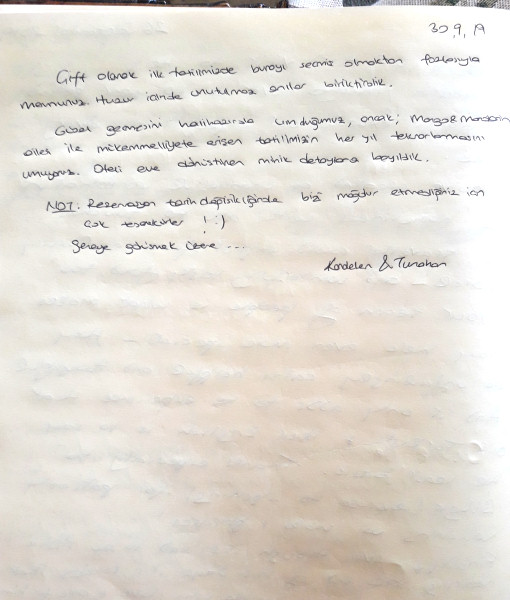 30.9.19
Çift olarak ilk tatilimizde burayı seçmiş olmaktan fazlasıyla
memnunuz. Huzur içinde unutulmaz anılar biriktirdik.
Güzel geçmesini halihazırda umduğumuz, ancak; Mango& Mandarin
ailesi ile mükemmelliyete erişen tatilimizin her yıl tekrarlanmasını
umuyoruz. Oteli eve dönüştüren minik detaylara bayıldık.
NOT: Rezervasyon tarih değişikliğinde bizi mağdur etmediğiniz için
çok teşekkürler ! :)
Seneye görüşmek üzere ...
Kardelen & Tunahan